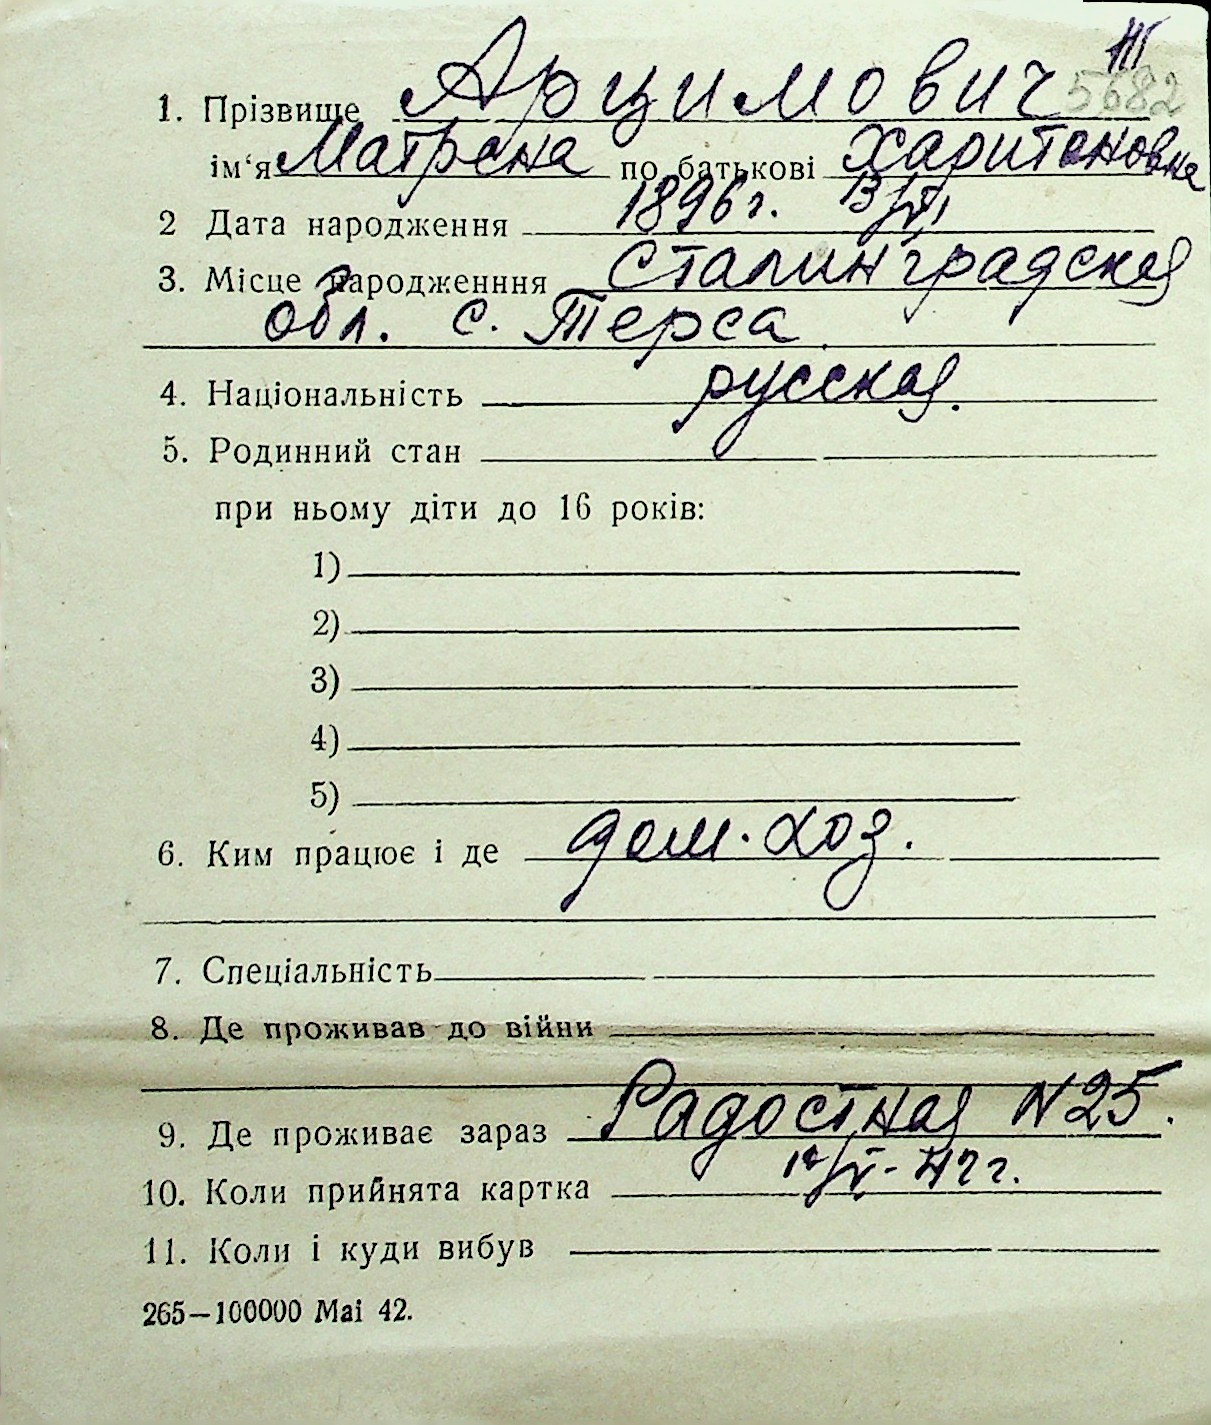 III
1. Прізвище Арцимович 5682
ім‘я Матрена по батькові Харитоновна
2 Дата народження 1896 г. 13/VI
3. Місце народженння Сталинградская
обл. с. Терса
4. Національність русская.
5. Родинний стан
при ньому діти до 16 років:
1)
2)
3)
4)
5)
6. Ким працює і де дом. хоз.
7. Спеціальність
8. Де проживав до війни
9. Де проживає зараз Радостная N 25.
10. Коли прийнята картка /V - 42 г.
11. Коли і куди вибув
265—100000 Mai 42.